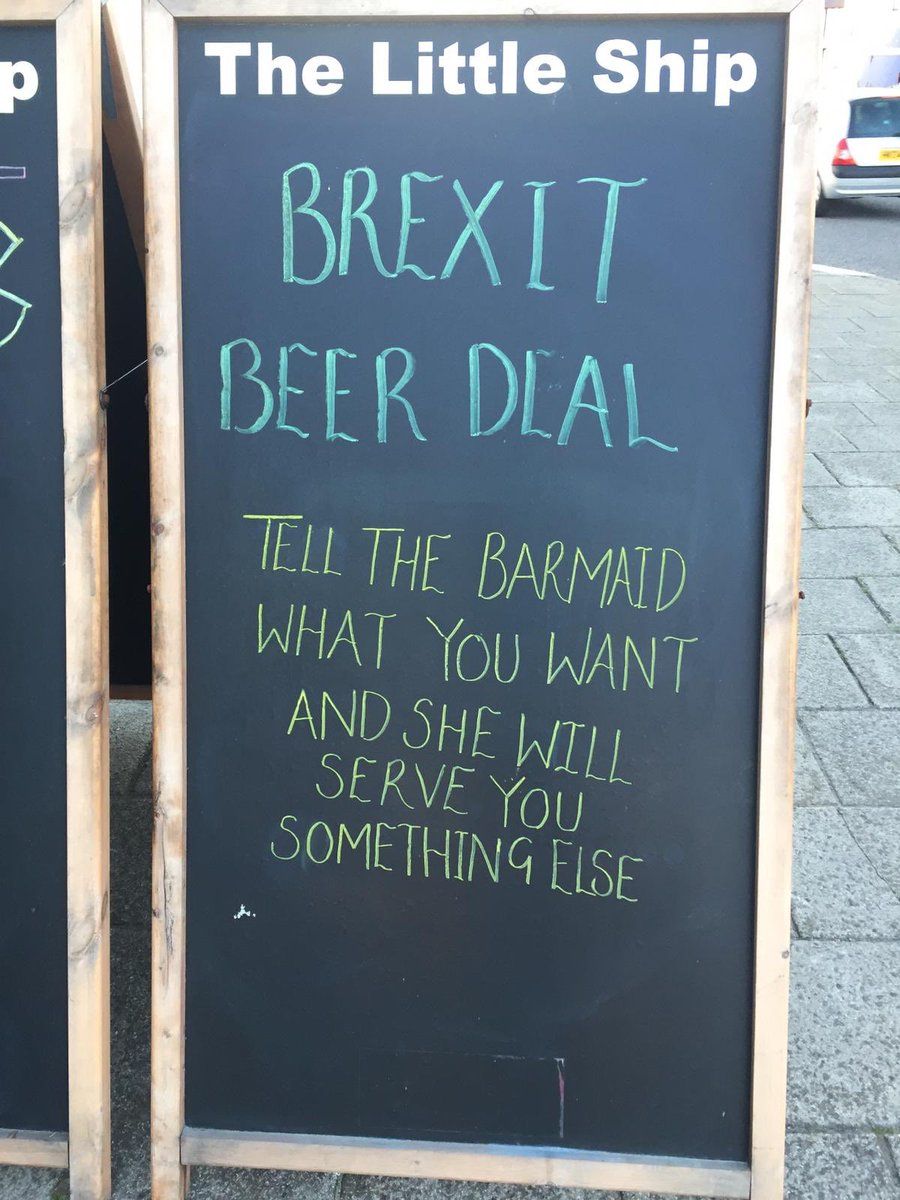 The Little Ship
BREXIT
BEER DEAL
TELL THE BARMAID
WHAT YOU WANT
AND SHE WILL
SERVE YOU
SOMETHING ELSE
p